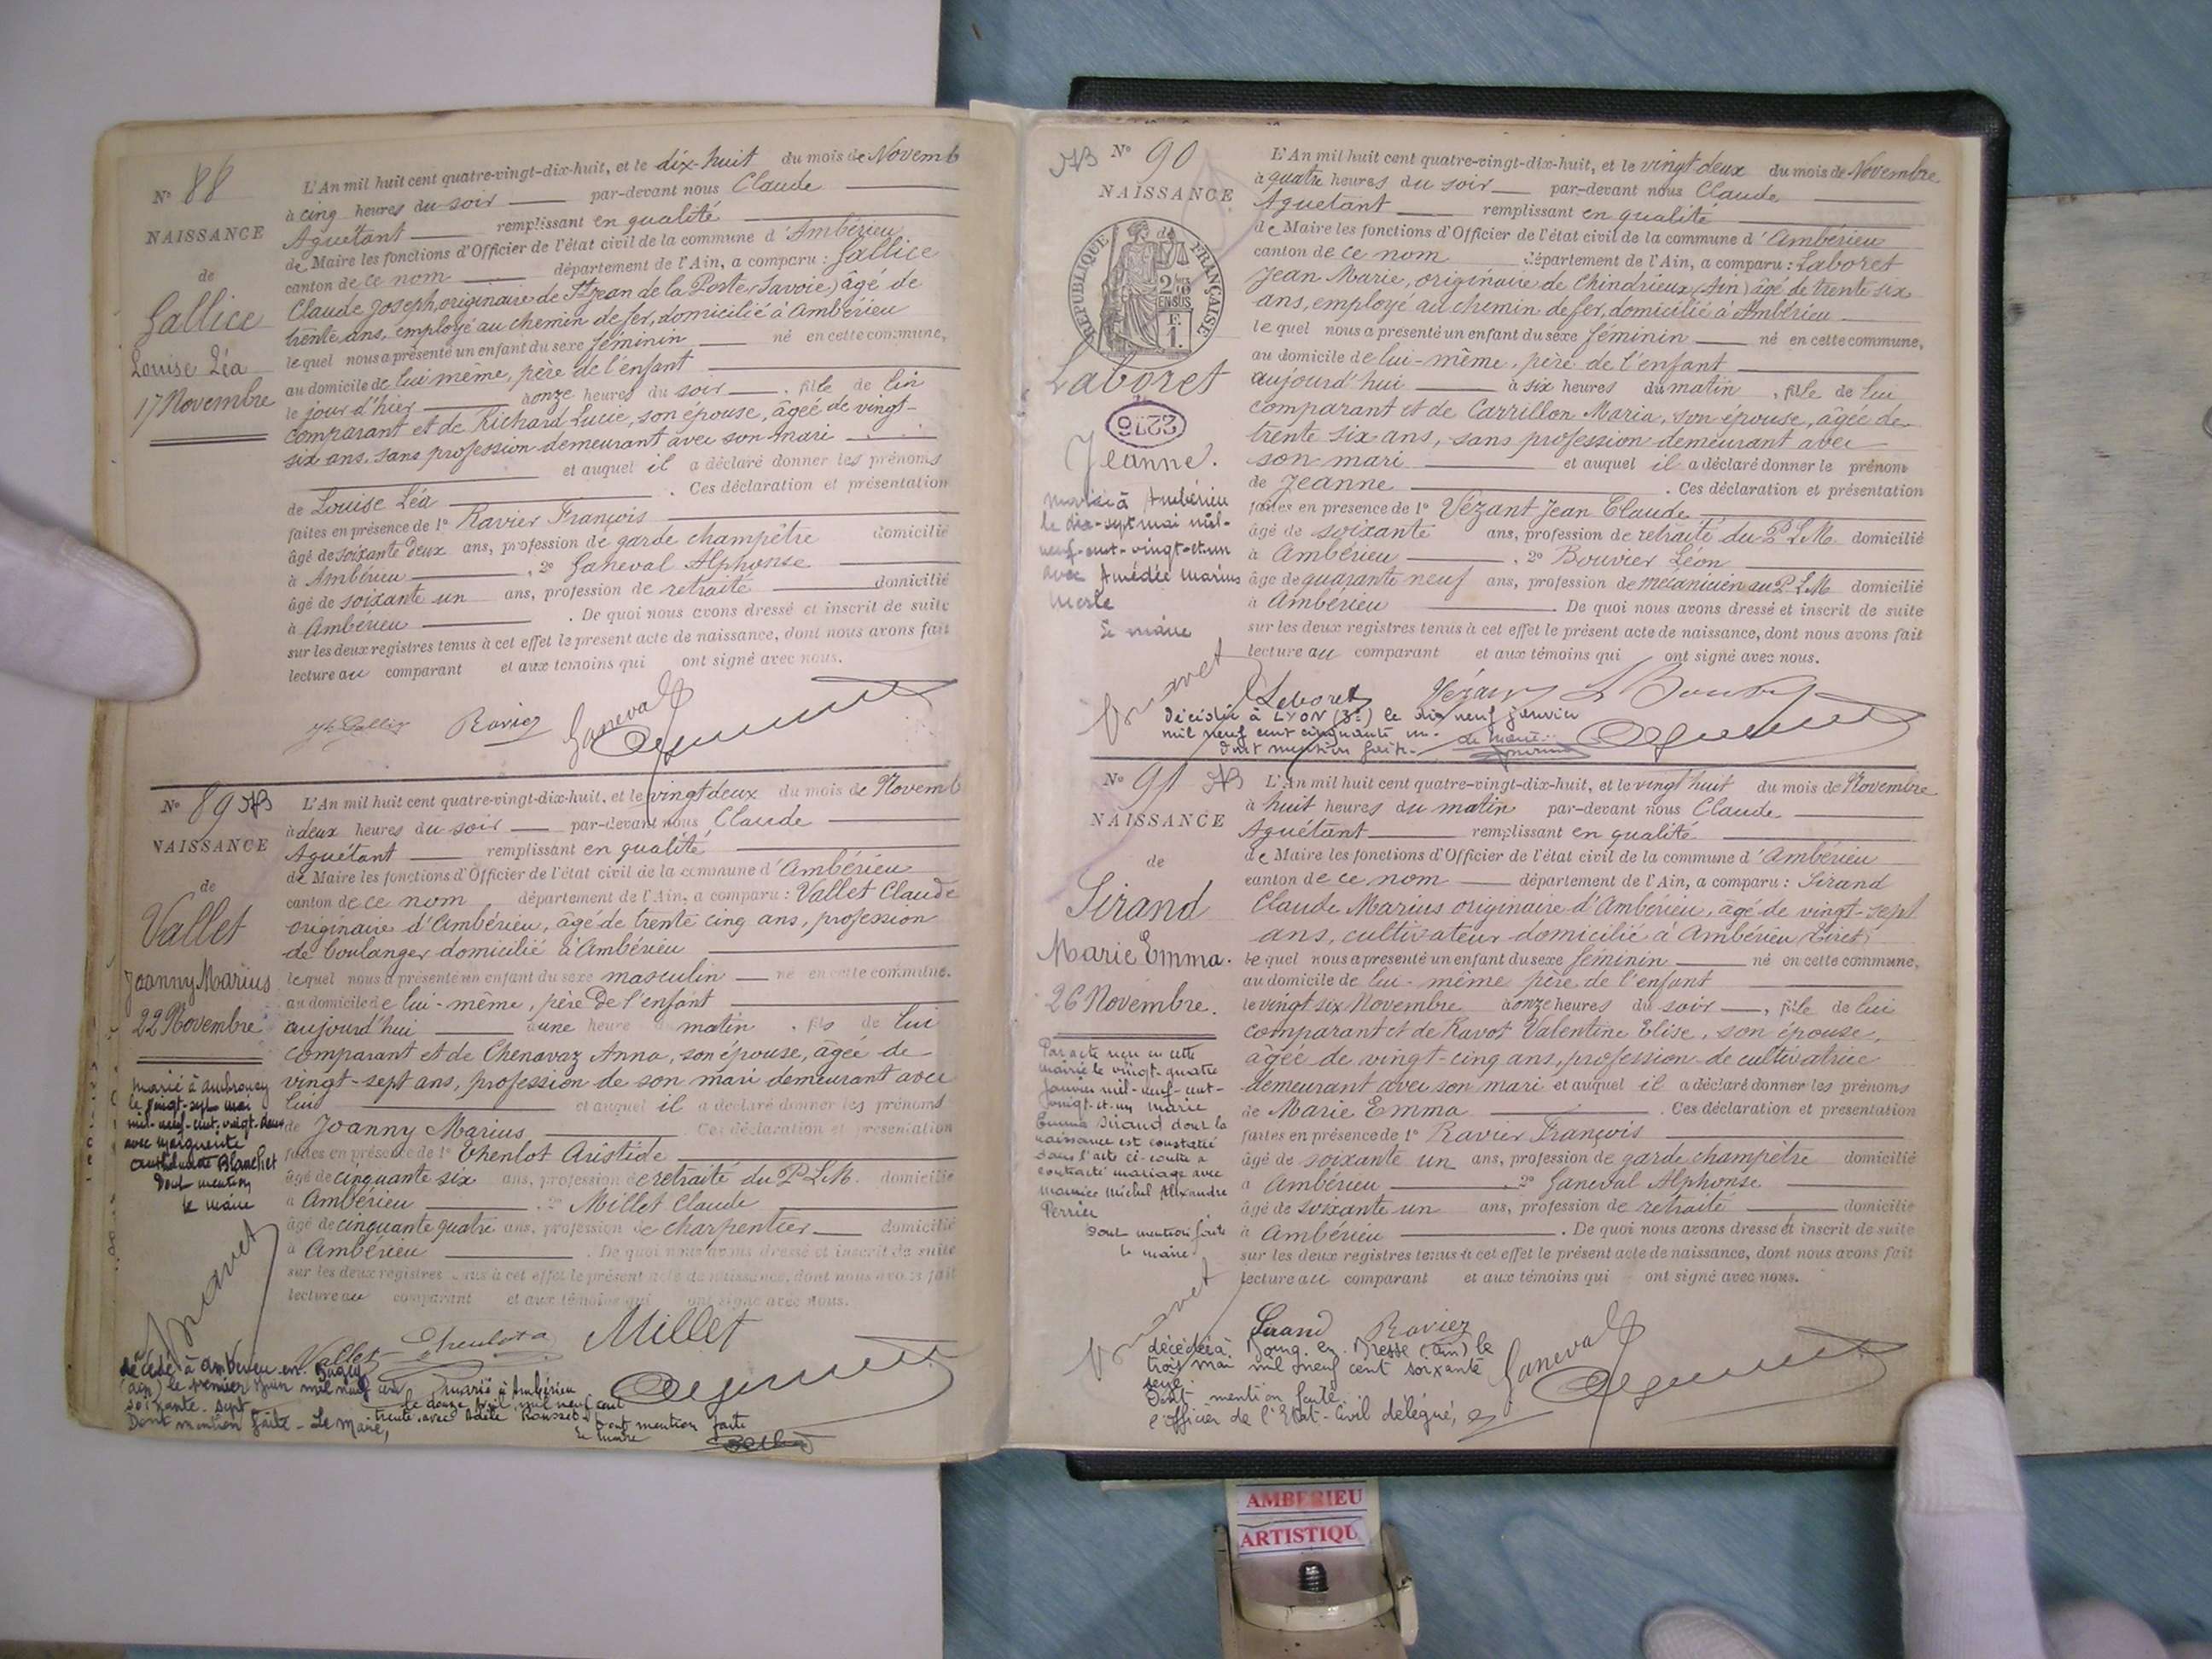 N° 88
NAISSANCE
de
Gallice
Louise Léa
17 Novembre
L'An mil huit cent quatre-vingt-dix-huit, et le dix-huit du mois de Novemb
à cinq heures du soir par-devant nous Claude
Aguétant remplissant en qualité
de Maire les fonctions d'Officier de l'état civil de la commune d'Ambérieu
canton de ce nom département de l'Ain, a comparu : Gallice
Claude Joseph, originaire de St Jean de la Porte (Savoie) âgé de
trente ans, employé au chemin de fer, domicilié à Ambérieu
lequel nous a présenté un enfant du sexe féminin né en cette commune,
au domicile de lui même, père de l'enfant
le jour d'hier à onze heures du soir, fille de lui
comparant et de Richard Lucie, son épouse, âgée de vingt-
six ans, sans profession demeurant avec son mari
et auquel il a déclaré donner les prénoms
de Louise Léa. Ces déclaration et présentation
faites en présence de 1° Ravier François
âgé de soixante deux ans, profession de garde champêtre domicilié
à Ambérieu, 2° Ganeval Alphonse
âgé de soixante un ans, profession de retraité domicilié
à Ambérieu. De quoi nous avons dressé et inscrit de suite
sur les deux registres tenus à cet effet le présent acte de naissance, dont nous avons fait
lecture au comparant et aux témoins qui ont signé avec nous.
Ravier Ganeval
N° 89
NAISSANCE
de
Vallet
Joanny Marius
22 Novembre
marié à Ambronay
le vingt-sept mai
mil-neuf-cent-vingt-deux
avec Marguerite
Blanchet
Dont mention
le maire
L'An mil huit cent quatre-vingt-dix-huit, et le vingt deux du mois de Novemb
à deux heures du soir par-devant nous Claude
Aguétant remplissant en qualité
de Maire les fonctions d'Officier de l'état civil de la commune d'Ambérieu
canton de ce nom département de l'Ain, a comparu : Vallet Claude
originaire d'Ambérieu, âgé de trente cinq ans, profession
de boulanger domicilié à Ambérieu
lequel nous a présenté un enfant du sexe masculin né en cette commune,
au domicile de lui-même, père de l'enfant
aujourd'hui à une heure matin, fils de lui
comparant et de Chenavaz Anna, son épouse, âgée de
vingt-sept ans, profession de son mari demeurant avec
lui et auquel il a déclaré donner les prénoms
de Joanny Marius. Ces déclaration et présentation
faites en présence de 1° Thenlot Aristide
âgé de cinquante six ans, profession de retraité du P.L.M. domicilié
à Ambérieu, 2° Millet Claude
âgé de cinquante quatre ans, profession de charpentier domicilié
à Ambérieu. De quoi nous avons dressé et inscrit de suite
sur les deux registres tenus à cet effet le présent acte de naissance, dont nous avons fait
lecture au comparant et aux témoins qui ont signé avec nous.
Vallet Millet
décédé à Ambérieu en Bugey
(Ain) le premier juin mil neuf cent
soixante-sept
Dont mention faite - Le Maire,
marié à Ambérieu
le douze avril mil neuf cent
trente avec Adèle Rousset
Dont mention faite
Le maire
N° 90
NAISSANCE
RÉPUBLIQUE FRANÇAISE
Laboret
2276
Jeanne.
mariée à Ambérieu
le dix-sept mai mil-
neuf-cent-vingt-et-un
avec Amédée Marius
Merle
Le maire
L'An mil huit cent quatre-vingt-dix-huit, et le vingt deux du mois de Novembre
à quatre heures du soir par-devant nous Claude
Aguétant remplissant en qualité
de Maire les fonctions d'Officier de l'état civil de la commune d'Ambérieu
canton de ce nom département de l'Ain, a comparu : Laboret
Jean Marie, originaire de Chindrieux (Ain) âgé de trente six
ans, employé au chemin de fer, domicilié à Ambérieu
lequel nous a présenté un enfant du sexe féminin né en cette commune,
au domicile de lui-même, père de l'enfant
aujourd'hui à six heures du matin, fille de lui
comparant et de Carrillon Maria, son épouse, âgée de
trente six ans, sans profession demeurant avec
son mari et auquel il a déclaré donner le prénom
de Jeanne. Ces déclaration et présentation
faites en présence de 1° Vézant Jean Claude
âgé de soixante ans, profession de retraité du P.L.M. domicilié
à Ambérieu, 2° Bouvier Léon
âgé de quarante neuf ans, profession de mécanicien au P.L.M. domicilié
à Ambérieu. De quoi nous avons dressé et inscrit de suite
sur les deux registres tenus à cet effet le présent acte de naissance, dont nous avons fait
lecture au comparant et aux témoins qui ont signé avec nous.
Laboret
Décédée à LYON (3e) le dix neuf janvier
mil neuf cent cinquante un.
Dont mention faite.
N° 91
NAISSANCE
de
Sirand
Marie Emma.
26 Novembre.
Par acte reçu en cette
mairie le vingt-quatre
janvier mil-neuf-cent-
vingt-et-un Marie
Emma Sirand dont la
naissance est constatée
dans l'acte ci-contre a
contracté mariage avec
Maurice Michel Alexandre
Perrier
Dont mention faite
le maire
L'An mil huit cent quatre-vingt-dix-huit, et le vingt huit du mois de Novembre
à huit heures du matin par-devant nous Claude
Aguétant remplissant en qualité
de Maire les fonctions d'Officier de l'état civil de la commune d'Ambérieu
canton de ce nom département de l'Ain, a comparu : Sirand
Claude Marius originaire d'Ambérieu, âgé de vingt-sept
ans, cultivateur domicilié à Ambérieu (Tiret)
lequel nous a présenté un enfant du sexe féminin né en cette commune,
au domicile de lui-même père de l'enfant
le vingt six Novembre à onze heures du soir, fille de lui
comparant et de Ravot Valentine Elise, son épouse,
âgée de vingt-cinq ans, profession de cultivatrice
demeurant avec son mari et auquel il a déclaré donner les prénoms
de Marie Emma. Ces déclaration et présentation
faites en présence de 1° Ravier François
âgé de soixante un ans, profession de garde champêtre domicilié
à Ambérieu, 2° Ganeval Alphonse
âgé de soixante un ans, profession de retraité domicilié
à Ambérieu. De quoi nous avons dressé et inscrit de suite
sur les deux registres tenus à cet effet le présent acte de naissance, dont nous avons fait
lecture au comparant et aux témoins qui ont signé avec nous.
Sirand Ravier Ganeval
décédée à Bourg-en-Bresse (Ain) le
trois mai mil neuf cent soixante
seize.
Dont mention faite
l'Officier de l'Etat-Civil délégué,
AMBERIEU
ARTISTIQU